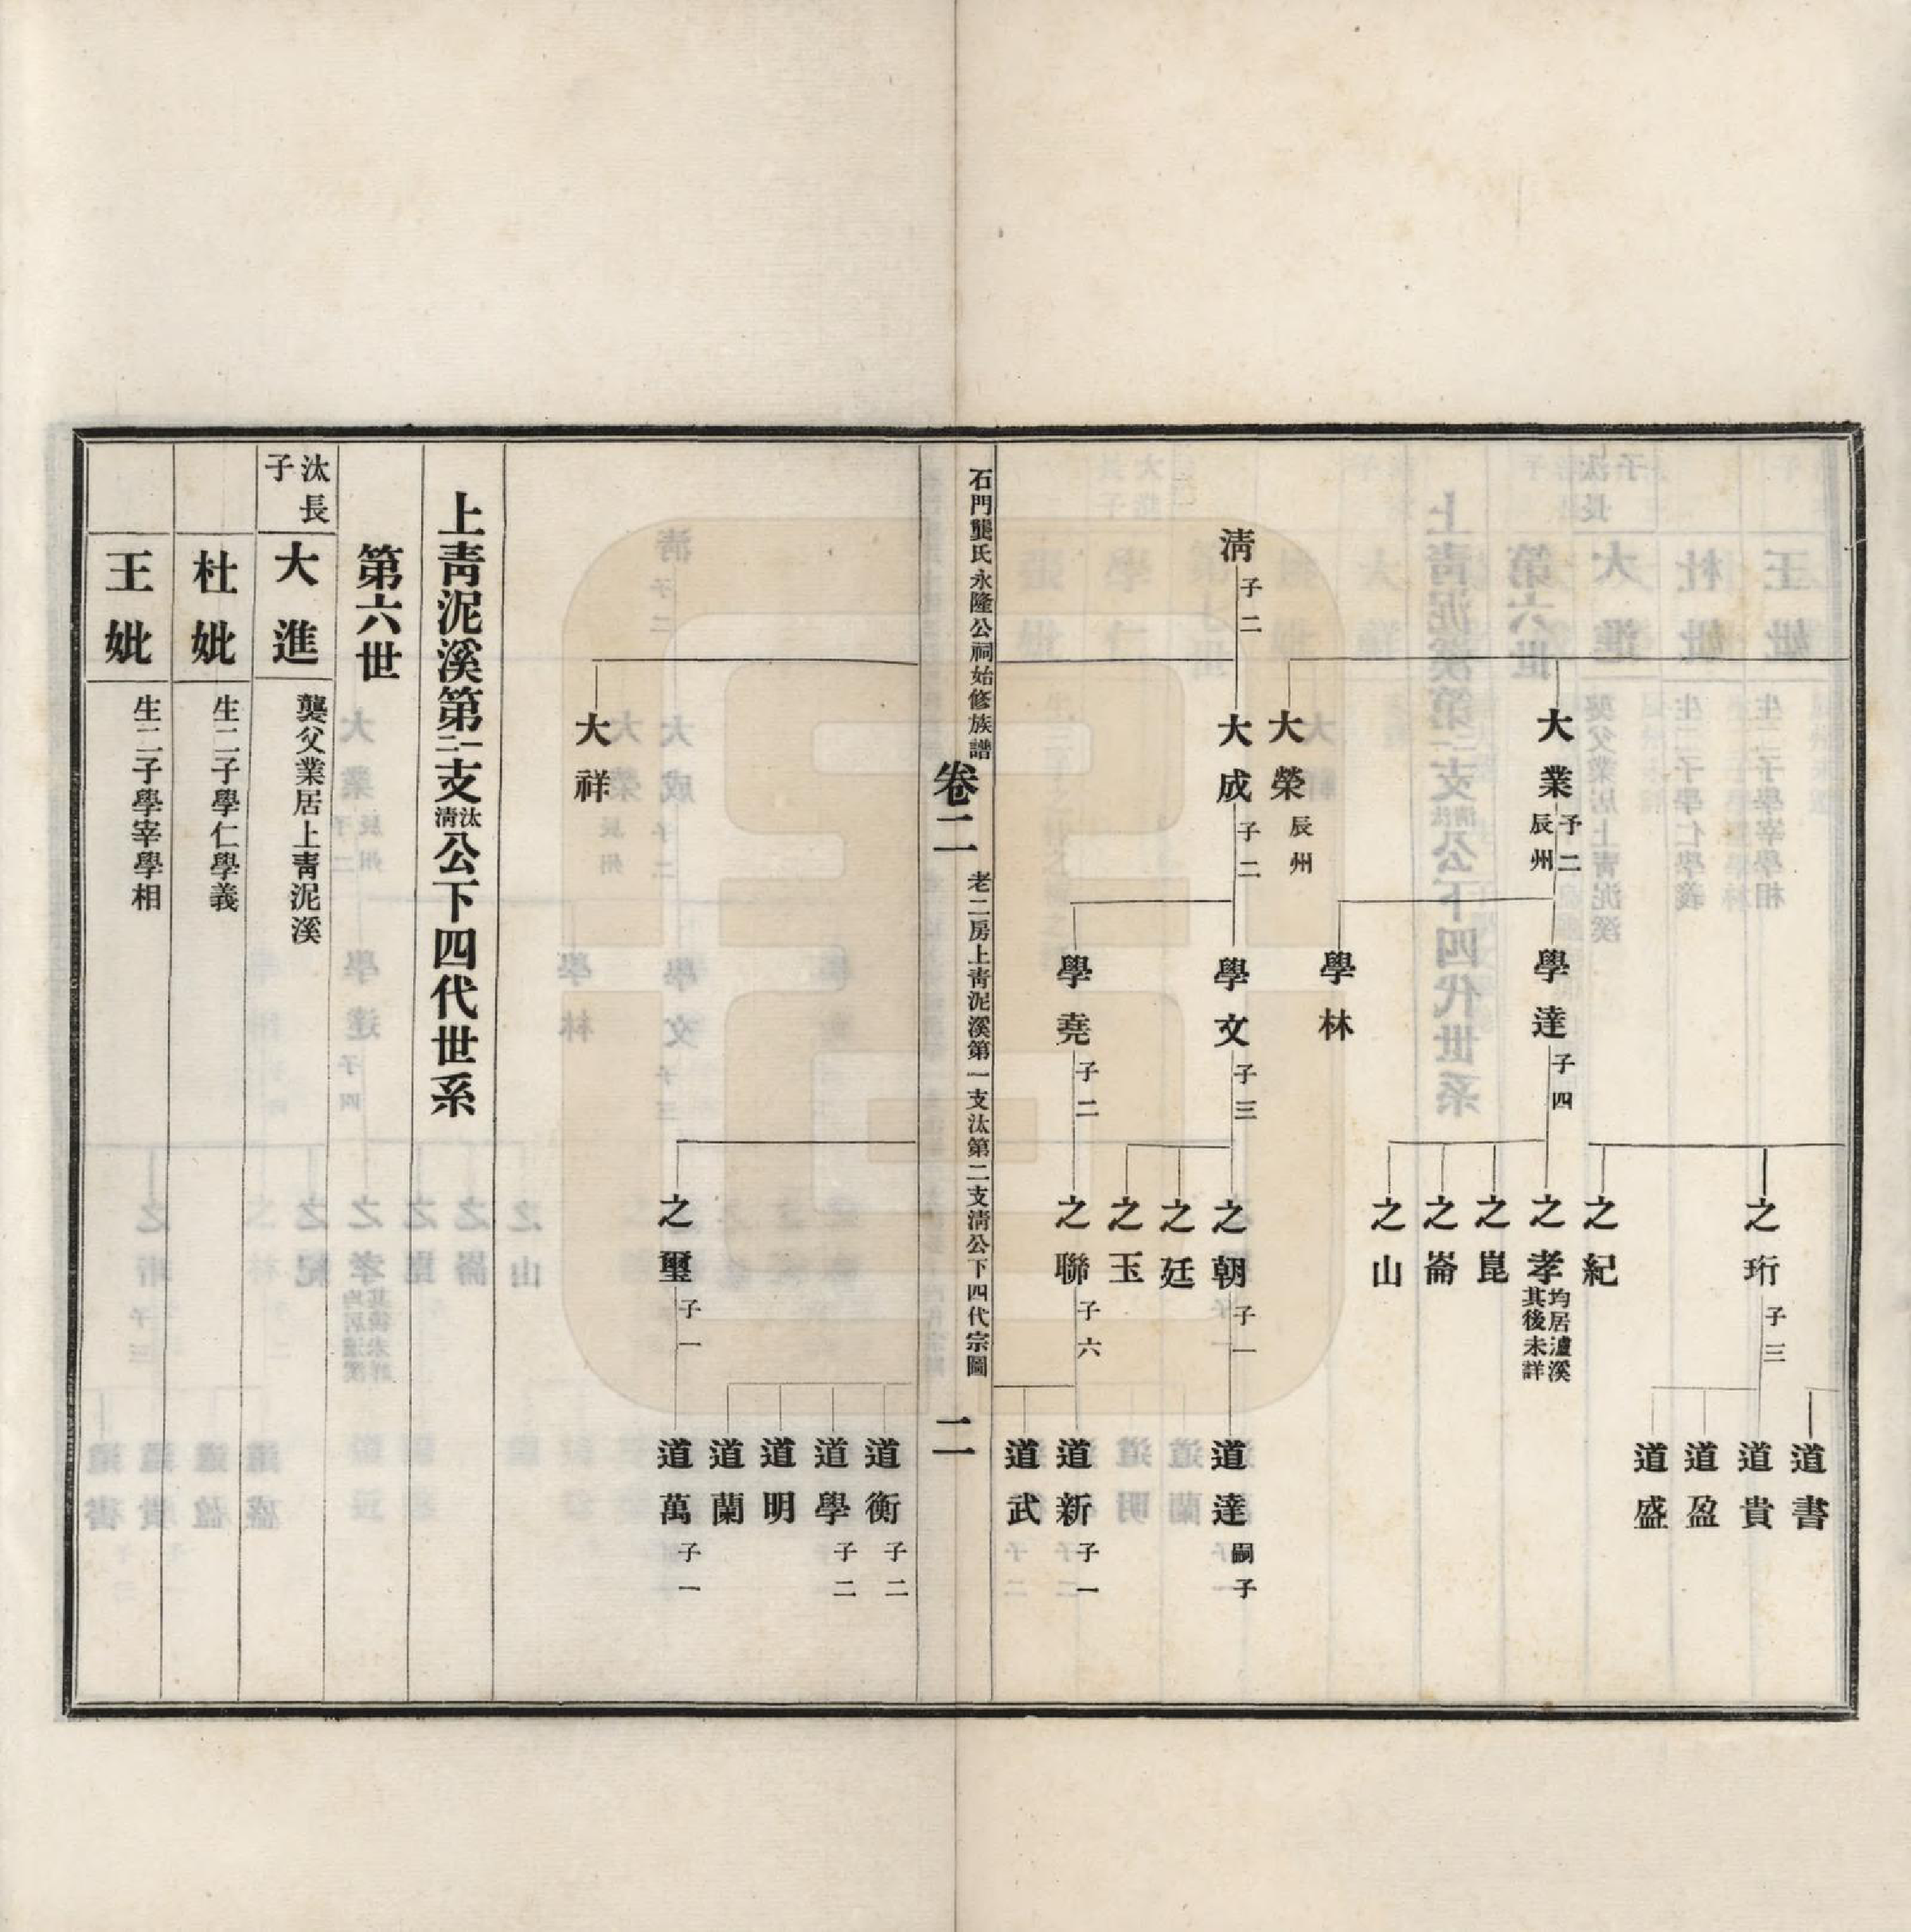 道書
之珩 子三
道貴
道盈
道盛
之紀
大業 子二 辰州
學達 子四
之孝 均居瀘溪其後未詳
之崑
之崙
之山
學林
大榮 辰州
清 子二
大成 子二
學文 子三
之朝 子一
道達 嗣子
之廷
之玉
學堯 子二
之聯 子六
道新 子一
道武
石門龔氏永隆公祠始修族譜
卷二
老二房上青泥溪第一支汰第二支清公下四代宗圖
二
道衡 子二
道學 子二
道明
道蘭
之璽 子一
道萬 子一
大祥
上青泥溪第一二支汰清公下四代世系
第六世
汰長子
大進
龔父業居上青泥溪
杜妣
生二子學仁學義
王妣
生二子學宰學相